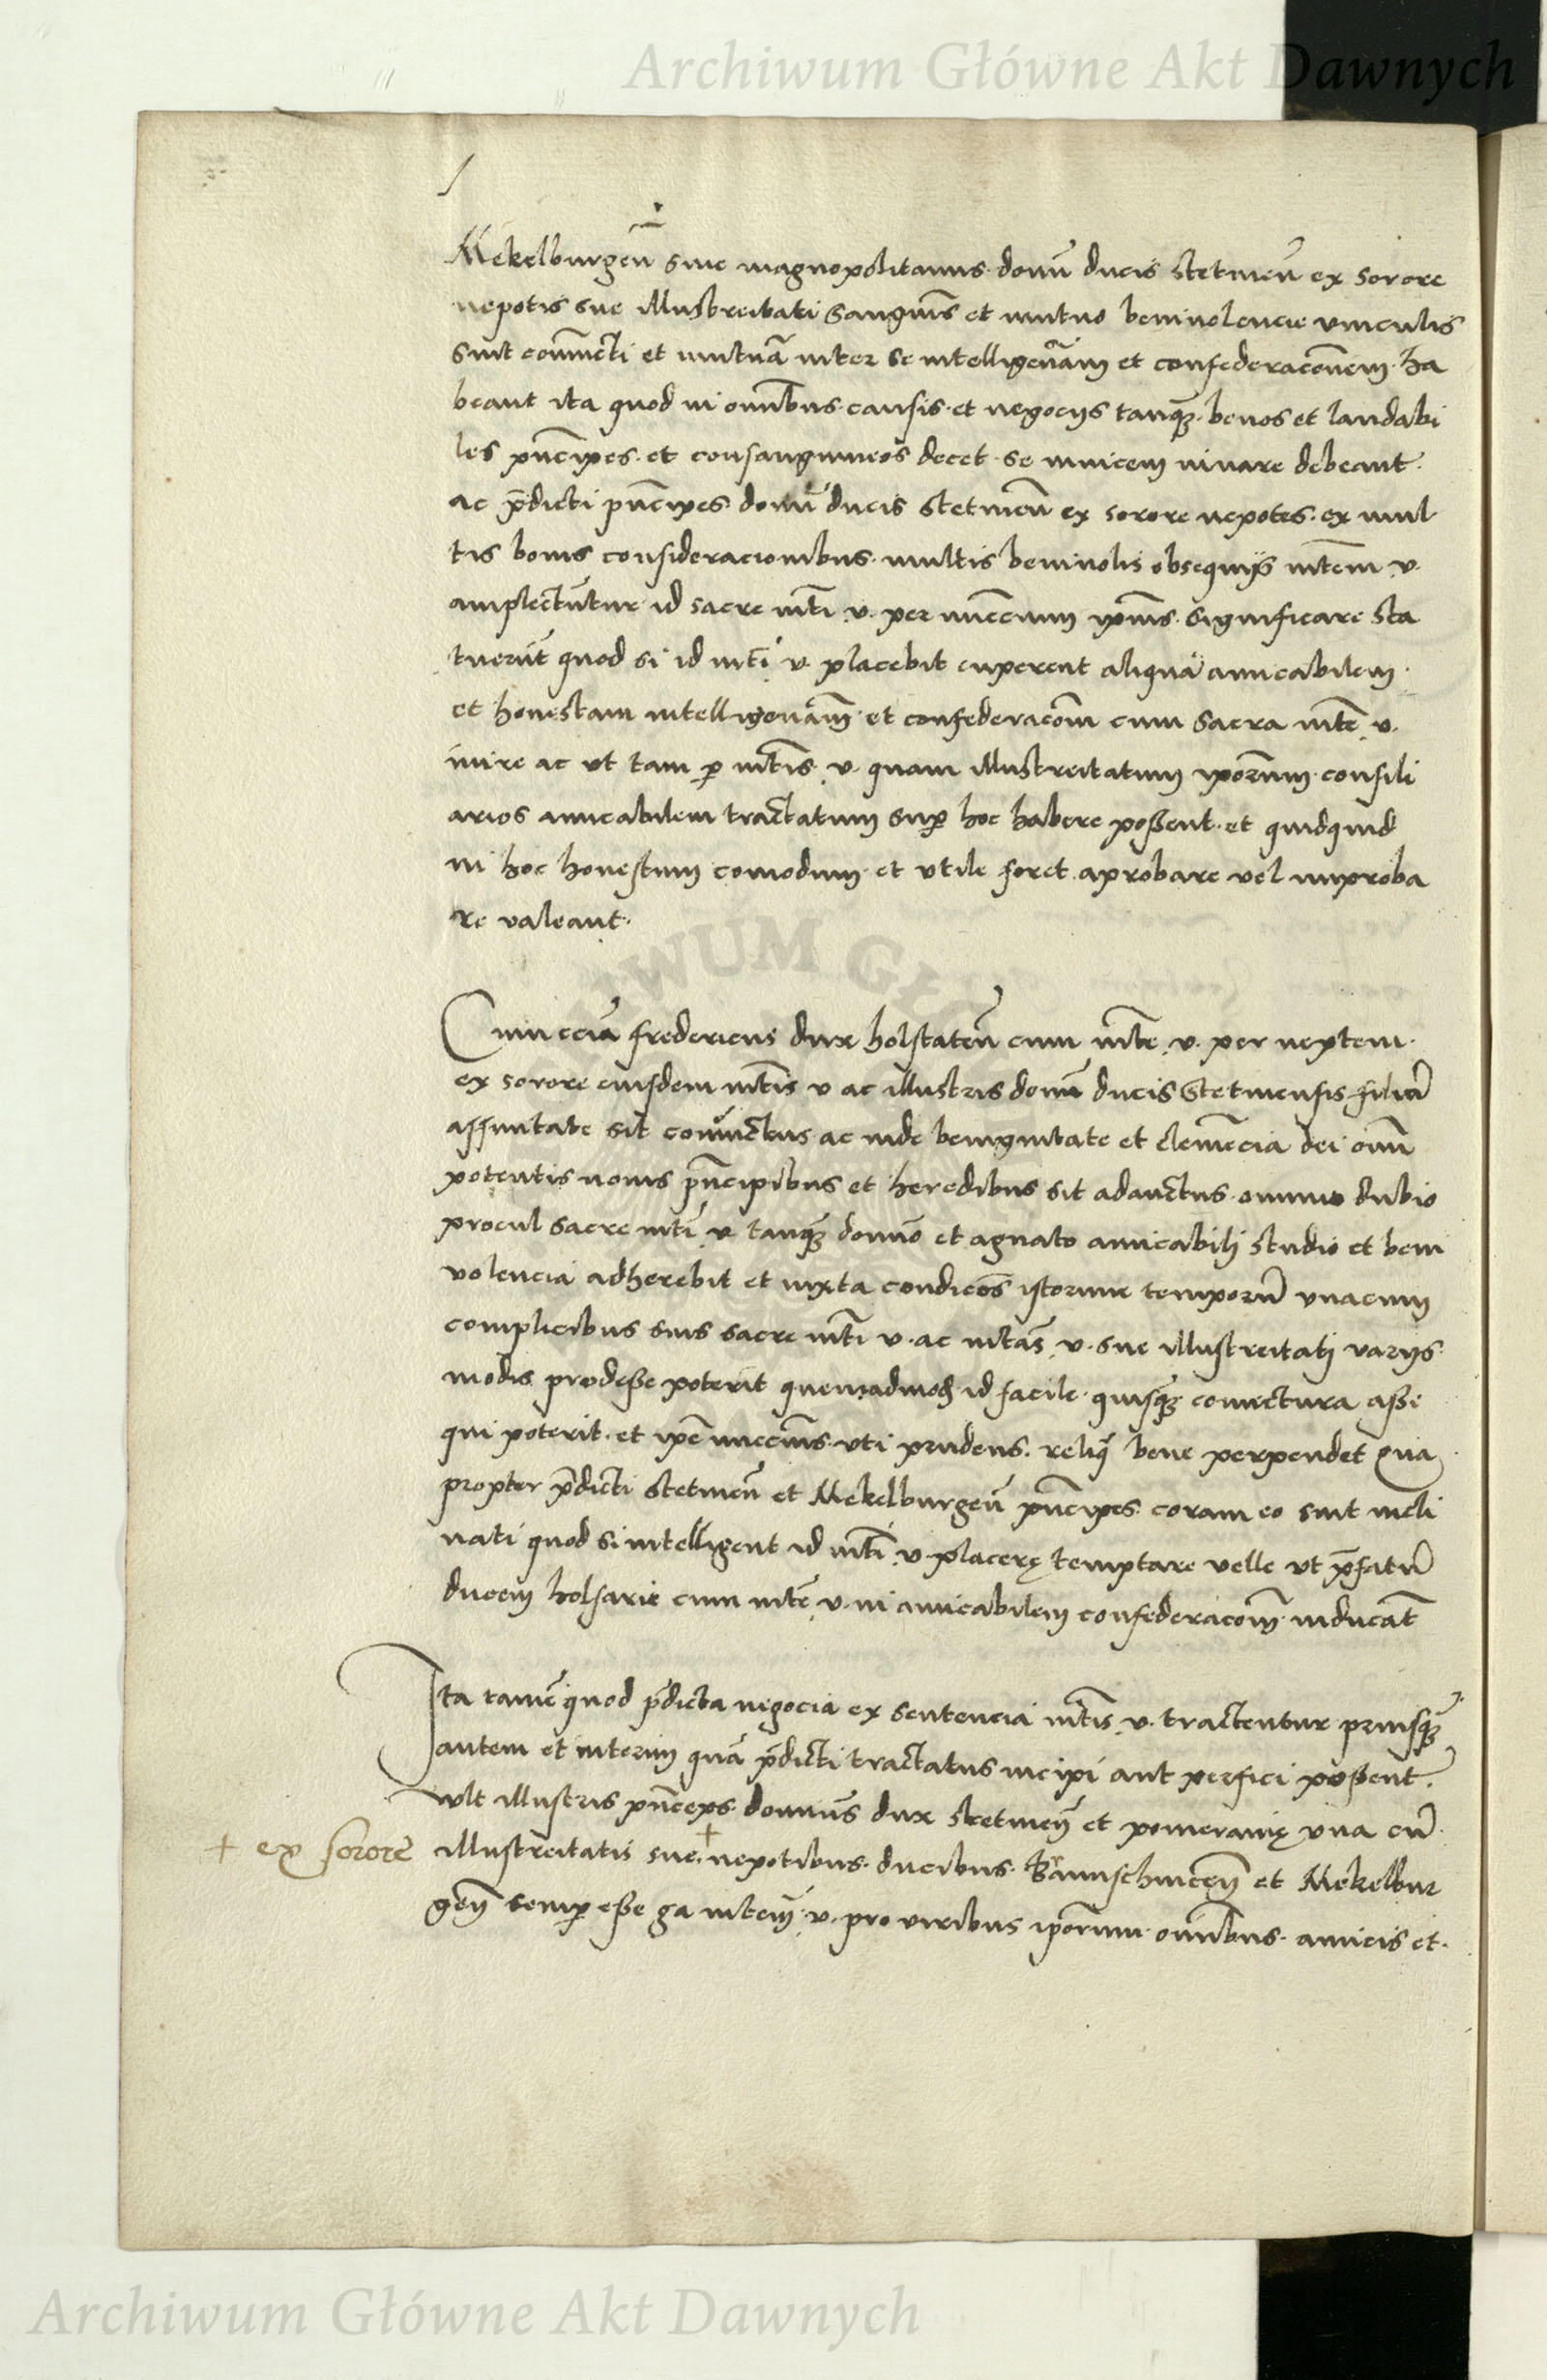 Archiwum Główne Akt Dawnych
Mekelburgeñ siue magnopolitanus domī ducis stetineñ ex sorore
nepotis sue illustreitati Sanguīs et mutuo beniuolencie vinculis
sint coniūcti et mutuā inter se intelligenciam et confederacionem ha
beant ita quod in omībus causis et negocijs tanq̄ bonos et laudabi
les prīcipes et consanguineos decet se inuicem iuuare debeant
ac p̄dicti prīcipes domī ducis stetineñ ex sorore nepotes ex mul
tis bonis consideracionibus multis beniuolis obsequijs mtem v.
amplectūtur id sacre mti v. per nunccium ipsius significare sta
tuerūt quod si id mti v. placebit cuperent aliquā amicabilem
et honestam intelligenciam et confederacōm cum sacra mte v.
inire ac ut tam p mtis v. quam illustreitatum ipsorum consili
arios amicabilem tractatum sup hoc habere possent et quidquid
in hoc honestum comodum et vtile foret aprobare vel improba
re valeant
Cum eciā fredericus dux holstateñ cum mte v. per neptem
ex sorore eiusdem mtis v ac illustris domī ducis Stetinensis filiā
affinitate sit coniūctus ac inde benignitate et clemēcia dei omī
potentis nouis prīcipibus et heredibus sit adauctus omnino dubio
procul sacre mti v. tanq̄ domīo et agnato amicabili studio et beni
volencia adherebit et iuxta condicōes istorum temporū vnacum
complicibus suis sacre mti v. ac mtas v. sue illustreitati varijs
modis prodesse poterit quemadmod id facile quisq̄ coniectura asse
qui poterit et ipse nunccius vti prudens reliq̄ bene perpendet Qua
propter p̄dicti stetineñ et Mekelburgeñ prīcipes coram eo sint incli
nati quod si intelligent id mti v. placerę temptare velle vt p̄fatū
ducem holsacie cum mte v. in amicabilem confederacōm inducāt
Ita tamē quod p̄dicta negocia ex sentencia mtis v. tractentur priusq̄
autem et interim quā p̄dicti tractatus incipi aut perfici possent
vult illustris prīceps domīus dux stetineñ et pomeranię vna cū
+ ex sorore illustreitatis sue + nepotibus ducibus Braunschwiceñ et Mekelbur
geñ semp esse ga mtem v. pro viribus ipsorum omībus amicis et
Archiwum Główne Akt Dawnych